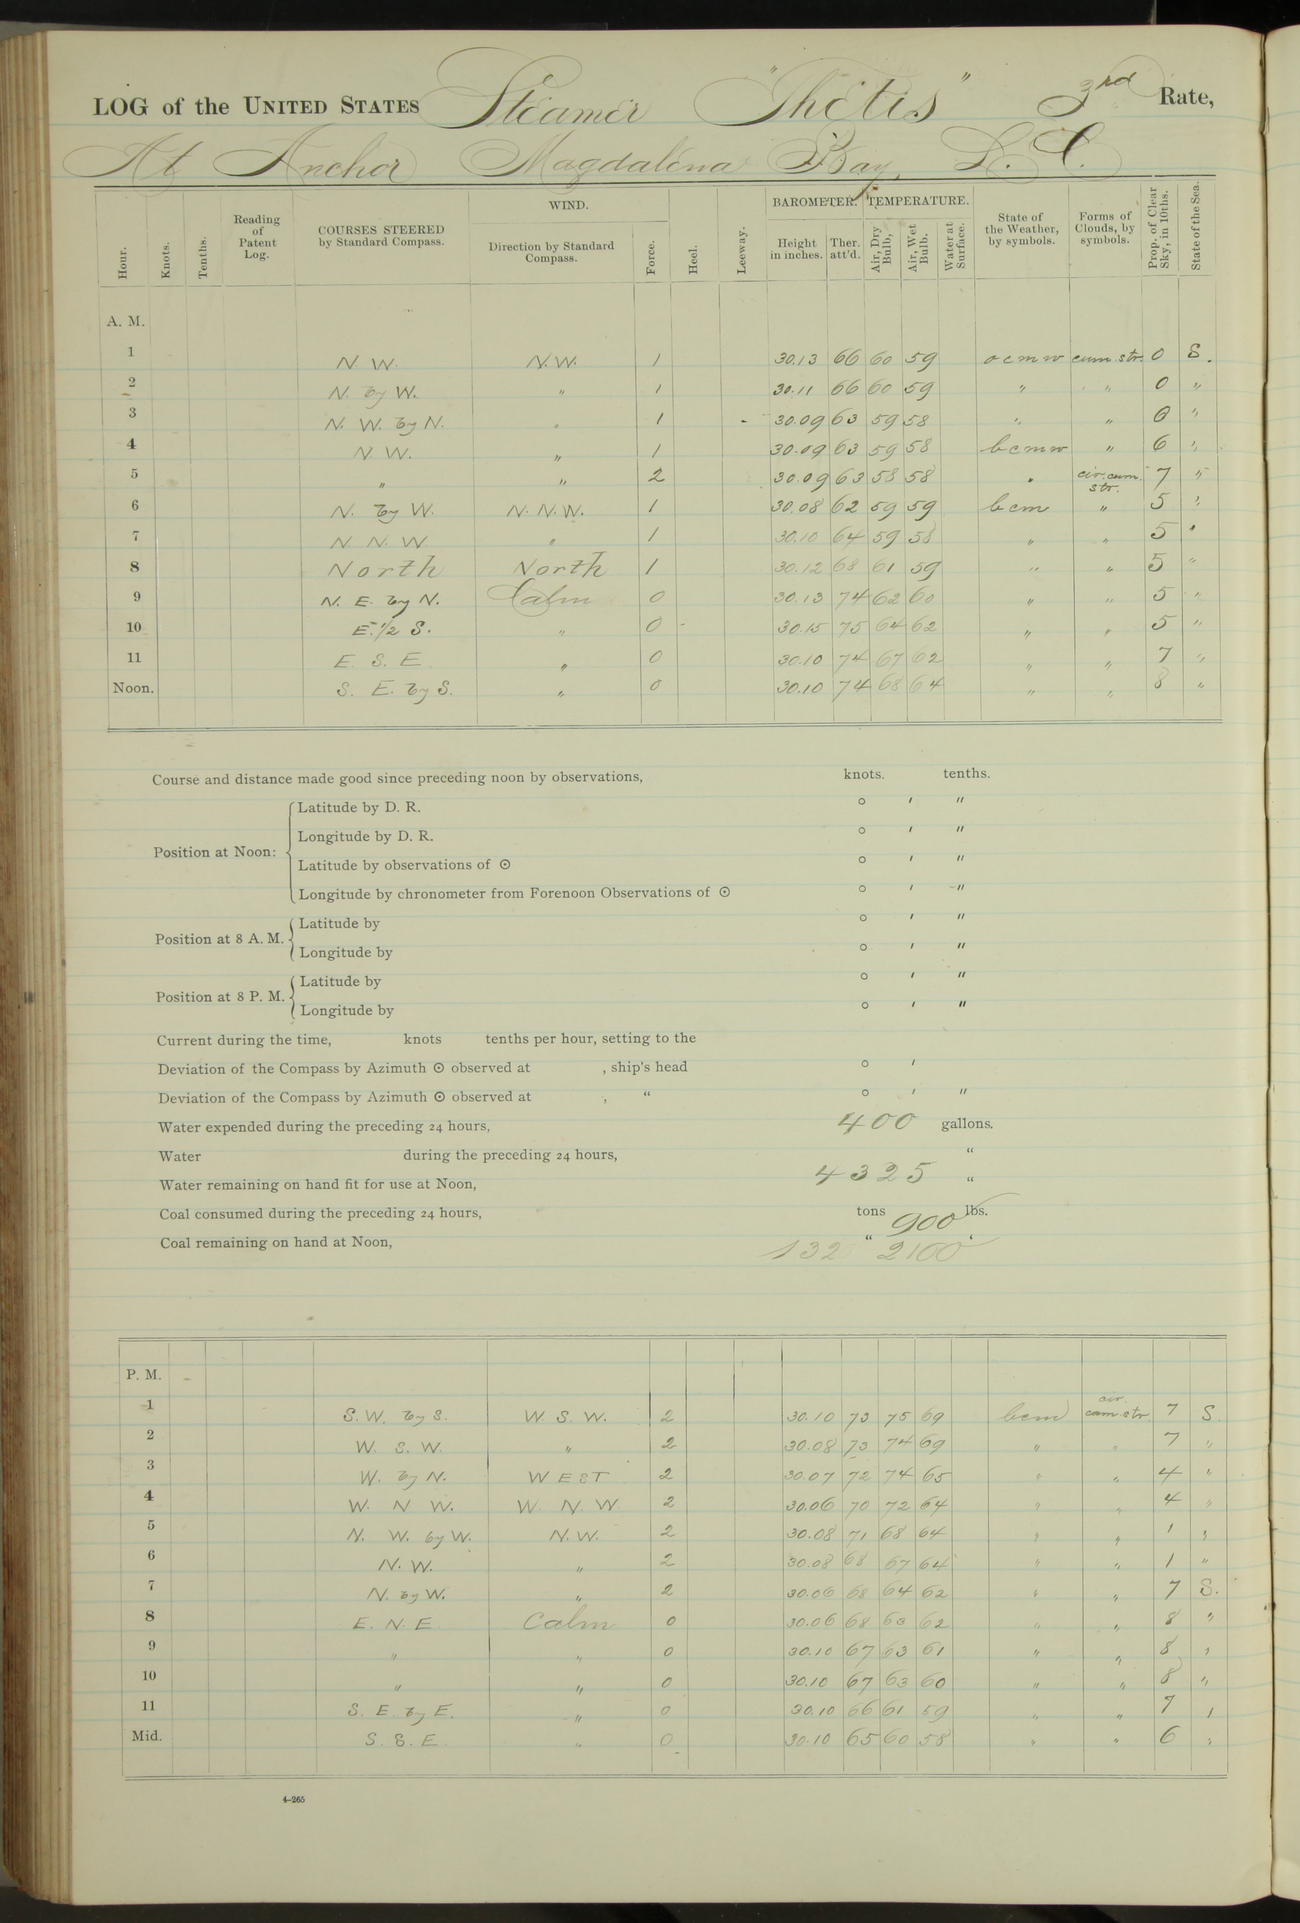 LOG of the UNITED STATES Steamer "Thetis" 3rd Rate,
At Anchor Magdalena Bay, L. C.
Hour. Knots. Tenths. Reading of Patent Log. COURSES STEERED by Standard Compass. WIND. Direction by Standard Compass. Force. Heel. Leeway. BAROMETER. Height in inches. Ther. att'd. TEMPERATURE. Air, Dry Bulb, Air, Wet Bulb. Water at Surface. State of the Weather, by symbols. Forms of Clouds, by symbols. Prop. of Clear Sky, in 10ths. State of the Sea.
A. M.
1 N. W. N.W. 1 30.13 66 60 59 o c m w cum. str. 0 S.
2 N. by W. " 1 30.11 66 60 59 " " 0 "
3 N. W. by N. " 1 30.09 63 59 58 " " 0 "
4 N W. " 1 30.09 63 59 58 b c m w " 6 "
5 " " 2 30.09 63 58 58 " cir. cum. str. 7 "
6 N. by W. N. N. W. 1 30.08 62 59 59 b c m " 5 "
7 N N. W " 1 30.10 64 59 58 " " 5 "
8 North North 1 30.12 68 61 59 " " 5 "
9 N. E. by N. Calm 0 30.13 74 62 60 " " 5 "
10 E. 1/2 S. " 0 30.15 75 64 62 " " 5 "
11 E. S. E " 0 30.10 74 67 62 " " 7 "
Noon. S. E. by S. " 0 30.10 74 68 64 " " 8 "
Course and distance made good since preceding noon by observations, knots. tenths.
Position at Noon:
Latitude by D. R. ° ′ ″
Longitude by D. R. ° ′ ″
Latitude by observations of ☉ ° ′ ″
Longitude by chronometer from Forenoon Observations of ☉ ° ′ ″
Position at 8 A. M.
Latitude by ° ′ ″
Longitude by ° ′ ″
Position at 8 P. M.
Latitude by ° ′ ″
Longitude by ° ′ ″
Current during the time, knots tenths per hour, setting to the
Deviation of the Compass by Azimuth ☉ observed at , ship's head ° ′
Deviation of the Compass by Azimuth ☉ observed at , " ° ′ ″
Water expended during the preceding 24 hours, 400 gallons.
Water during the preceding 24 hours, "
Water remaining on hand fit for use at Noon, 4325 "
Coal consumed during the preceding 24 hours, tons 900 lbs.
Coal remaining on hand at Noon, 132 " 2100 "
P. M.
1 S. W. by S. W. S. W. 2 30.10 73 75 69 b c m cir. cum str. 7 S.
2 W. S. W. " 2 30.08 73 74 69 " " 7 "
3 W. by N. WEST 2 30.07 72 74 65 " " 4 "
4 W. N W. W. N. W 2 30.06 70 72 64 " " 4 "
5 N. W. by W. N. W. 2 30.08 71 68 64 " " 1 "
6 N. W. " 2 30.08 68 67 64 " " 1 "
7 N. by W. " 2 30.06 68 64 62 " " 7 S.
8 E. N. E Calm 0 30.06 68 63 62 " " 8 "
9 " " 0 30.10 67 63 61 " " 8 "
10 " " 0 30.10 67 63 60 " " 8 "
11 S. E. by E. " 0 30.10 66 61 59 " " 7 "
Mid. S. S. E. " 0 30.10 65 60 58 " " 6 "
4–265